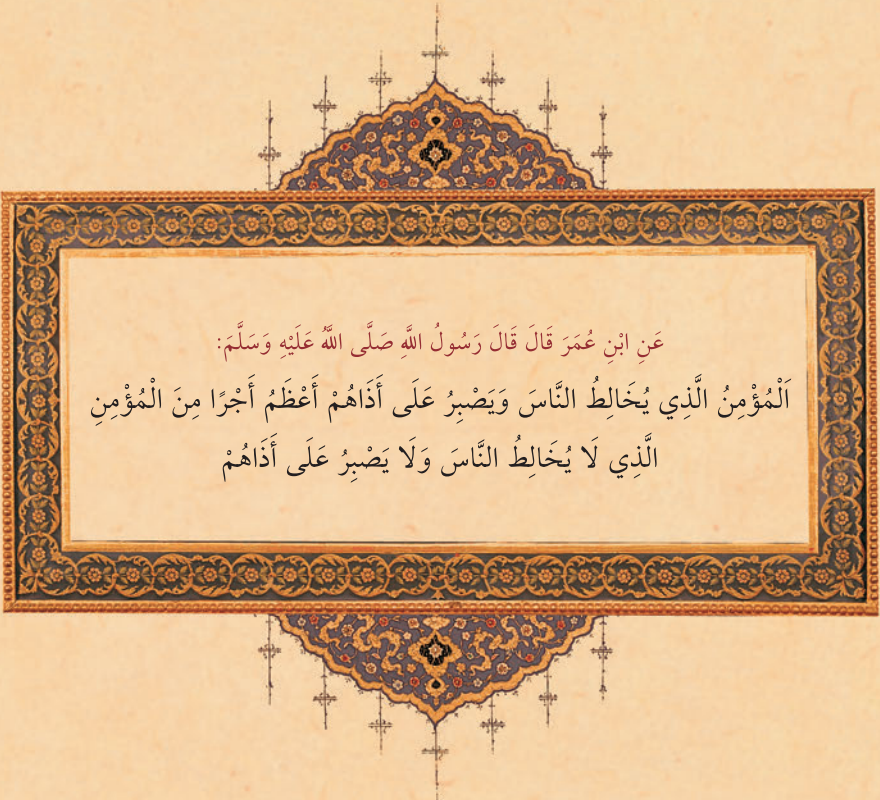 عَنِ ابْنِ عُمَرَ قَالَ قَالَ رَسُولُ اللَّهِ صَلَّى اللَّهُ عَلَيْهِ وَسَلَّمَ:
اَلْمُؤْمِنُ الَّذِي يُخَالِطُ النَّاسَ وَيَصْبِرُ عَلَى أَذَاهُمْ أَعْظَمُ أَجْرًا مِنَ الْمُؤْمِنِ
الَّذِي لَا يُخَالِطُ النَّاسَ وَلَا يَصْبِرُ عَلَى أَذَاهُمْ